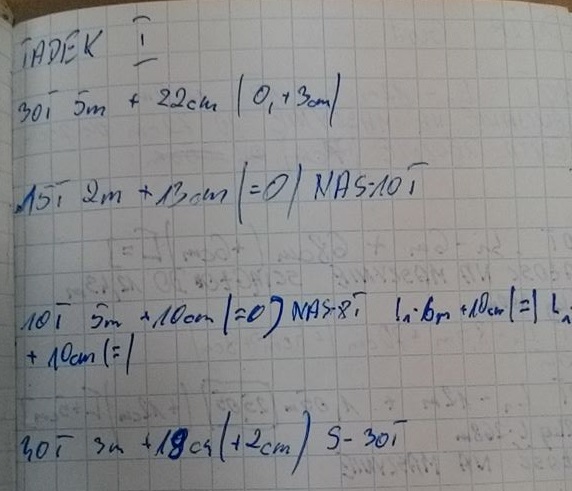 TADEK I
30T 5m + 22cm (0,+3cm)
15T 2m +13cm (=0) NAS-10T
10T 5m +10cm (=0) NAS-8T L1-6m +10cm (=) L1
+ 10cm (=)
30T 3m +18cm (+2cm) S-30T